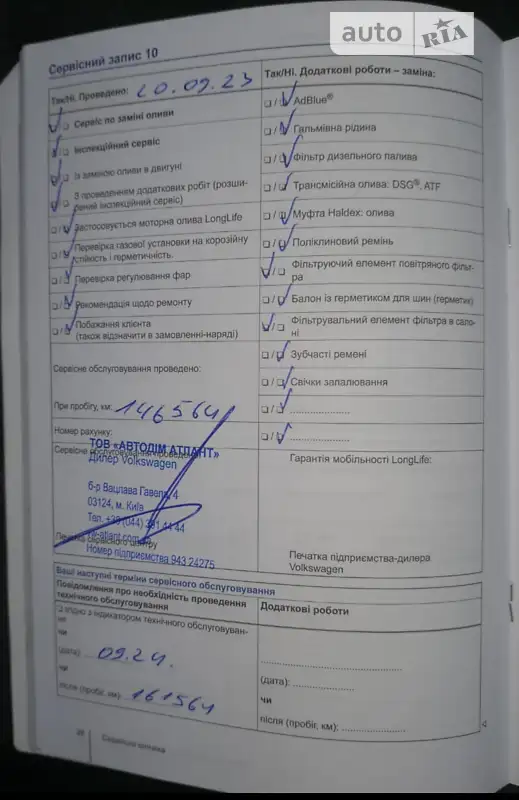 auto RIA
Сервісний запис 10
Так/Ні. Проведено: 20.09.23
❑ Сервіс по заміні оливи
❑ Інспекційний сервіс
❑ Із заміною оливи в двигуні
❑ З проведенням додаткових робіт (розши-
рений інспекційний сервіс)
❑/❑ Застосовується моторна олива LongLife
❑/❑ Перевірка газової установки на корозійну
стійкість і герметичність.
❑/❑ Перевірка регулювання фар
❑/❑ Рекомендація щодо ремонту
❑/❑ Побажання клієнта
(також відзначити в замовленні-наряді)
Сервісне обслуговування проведено:
При пробігу, км: 146564
Номер рахунку:
Сервісне обслуговування проведено
ТОВ «АВТОДІМ АТЛАНТ»
Дилер Volkswagen
б-р Вацлава Гавела, 4
03124, м. Київ
Тел. +38 (044) 391 44 44
Печатка сервісного центру
Номер підприємства 943 24275
Так/Ні. Додаткові роботи – заміна:
❑/❑ AdBlue®
❑/❑ Гальмівна рідина
❑/❑ Фільтр дизельного палива
❑/❑ Трансмісійна олива: DSG®, ATF
❑/❑ Муфта Haldex: олива
❑/❑ Поліклиновий ремінь
❑/❑ Фільтруючий елемент повітряного фільт-
ра
❑/❑ Балон із герметиком для шин (герметик)
❑/❑ Фільтрувальний елемент фільтра в сало-
ні
❑/❑ Зубчасті ремені
❑/❑ Свічки запалювання
❑/❑ ....................
❑/❑ ....................
Гарантія мобільності LongLife:
Печатка підприємства-дилера
Volkswagen
Ваші наступні терміни сервісного обслуговування
Повідомлення про необхідність проведення
технічного обслуговування
❑ згідно з індикатором технічного обслуговуван-
ня
чи
(дата): 09.24.
чи
після (пробіг, км): 161564
Додаткові роботи
(дата): ....................
чи
після (пробіг, км): ....................
28 Сервісна книжка